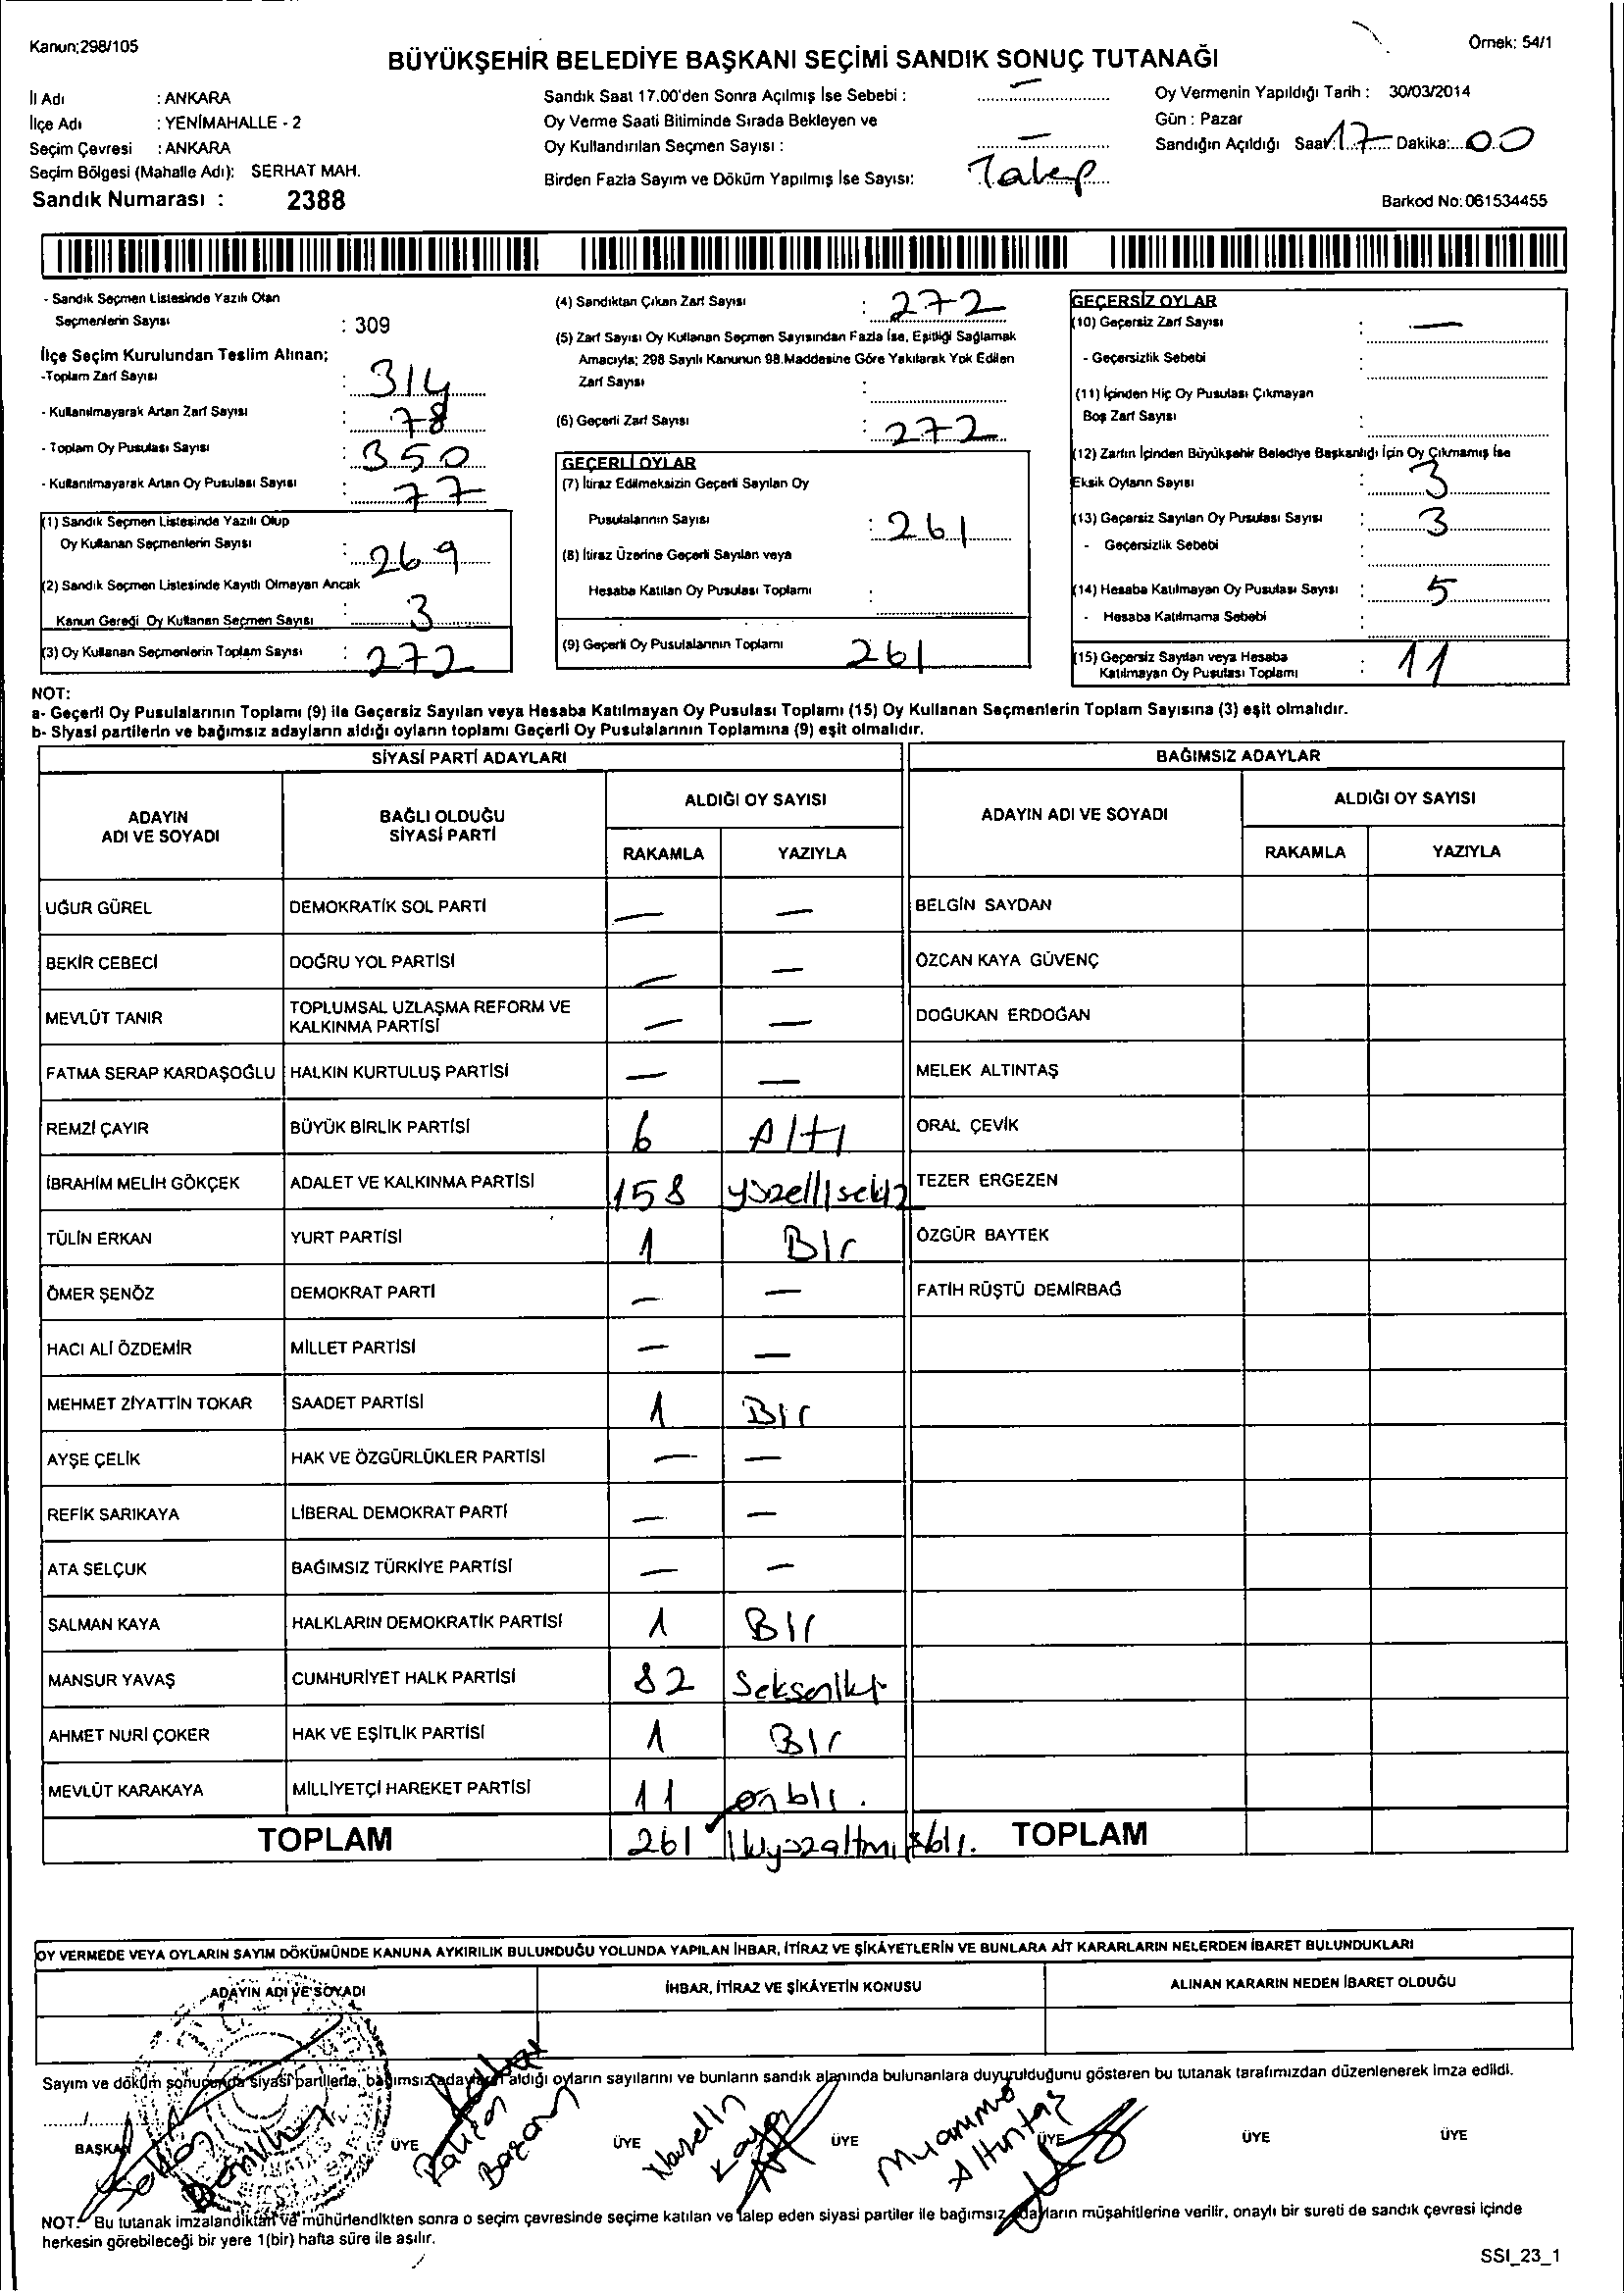 Kanun;298/105
Örnek: 54/1
BÜYÜKŞEHİR BELEDİYE BAŞKANI SEÇİMİ SANDIK SONUÇ TUTANAĞI
İl Adı : ANKARA
İlçe Adı : YENİMAHALLE - 2
Seçim Çevresi : ANKARA
Seçim Bölgesi (Mahalle Adı): SERHAT MAH.
Sandık Numarası : 2388
Sandık Saat 17.00'den Sonra Açılmış İse Sebebi : —
Oy Verme Saati Bitiminde Sırada Bekleyen ve
Oy Kullandırılan Seçmen Sayısı : —
Birden Fazla Sayım ve Döküm Yapılmış İse Sayısı: Talep
Oy Vermenin Yapıldığı Tarih : 30/03/2014
Gün : Pazar
Sandığın Açıldığı Saat: 17 Dakika: 00
Barkod No: 061534455
- Sandık Seçmen Listesinde Yazılı Olan
Seçmenlerin Sayısı : 309
İlçe Seçim Kurulundan Teslim Alınan;
-Toplam Zarf Sayısı : 314
- Kullanılmayarak Artan Zarf Sayısı : 78
- Toplam Oy Pusulası Sayısı : 350
- Kullanılmayarak Artan Oy Pusulası Sayısı : 77
(1) Sandık Seçmen Listesinde Yazılı Olup
Oy Kullanan Seçmenlerin Sayısı : 269
(2) Sandık Seçmen Listesinde Kayıtlı Olmayan Ancak
Kanun Gereği Oy Kullanan Seçmen Sayısı : 3
(3) Oy Kullanan Seçmenlerin Toplam Sayısı : 272
(4) Sandıktan Çıkan Zarf Sayısı : 272
(5) Zarf Sayısı Oy Kullanan Seçmen Sayısından Fazla İse, Eşitliği Sağlamak
Amacıyla; 298 Sayılı Kanunun 98.Maddesine Göre Yakılarak Yok Edilen
Zarf Sayısı :
(6) Geçerli Zarf Sayısı : 272
GEÇERLİ OYLAR
(7) İtiraz Edilmeksizin Geçerli Sayılan Oy
Pusulalarının Sayısı : 261
(8) İtiraz Üzerine Geçerli Sayılan veya
Hesaba Katılan Oy Pusulası Toplamı :
(9) Geçerli Oy Pusulalarının Toplamı 261
GEÇERSİZ OYLAR
(10) Geçersiz Zarf Sayısı : —
- Geçersizlik Sebebi :
(11) İçinden Hiç Oy Pusulası Çıkmayan
Boş Zarf Sayısı :
(12) Zarfın İçinden Büyükşehir Belediye Başkanlığı İçin Oy Çıkmamış İse
Eksik Oyların Sayısı : 3
(13) Geçersiz Sayılan Oy Pusulası Sayısı : 3
- Geçersizlik Sebebi :
(14) Hesaba Katılmayan Oy Pusulası Sayısı : 5
- Hesaba Katılmama Sebebi :
(15) Geçersiz Sayılan veya Hesaba
Katılmayan Oy Pusulası Toplamı : 11
NOT:
a- Geçerli Oy Pusulalarının Toplamı (9) ile Geçersiz Sayılan veya Hesaba Katılmayan Oy Pusulası Toplamı (15) Oy Kullanan Seçmenlerin Toplam Sayısına (3) eşit olmalıdır.
b- Siyasi partilerin ve bağımsız adayların aldığı oyların toplamı Geçerli Oy Pusulalarının Toplamına (9) eşit olmalıdır.
SİYASİ PARTİ ADAYLARI
ADAYIN
ADI VE SOYADI
BAĞLI OLDUĞU
SİYASİ PARTİ
ALDIĞI OY SAYISI
RAKAMLA YAZIYLA
UĞUR GÜREL DEMOKRATİK SOL PARTİ — —
BEKİR CEBECİ DOĞRU YOL PARTİSİ — —
MEVLÜT TANIR TOPLUMSAL UZLAŞMA REFORM VE
KALKINMA PARTİSİ — —
FATMA SERAP KARDAŞOĞLU HALKIN KURTULUŞ PARTİSİ — —
REMZİ ÇAYIR BÜYÜK BİRLİK PARTİSİ 6 Altı
İBRAHİM MELİH GÖKÇEK ADALET VE KALKINMA PARTİSİ 158 yüzellisekiz
TÜLİN ERKAN YURT PARTİSİ 1 Bir
ÖMER ŞENÖZ DEMOKRAT PARTİ — —
HACI ALİ ÖZDEMİR MİLLET PARTİSİ — —
MEHMET ZİYATTİN TOKAR SAADET PARTİSİ 1 Bir
AYŞE ÇELİK HAK VE ÖZGÜRLÜKLER PARTİSİ — —
REFİK SARIKAYA LİBERAL DEMOKRAT PARTİ — —
ATA SELÇUK BAĞIMSIZ TÜRKİYE PARTİSİ — —
SALMAN KAYA HALKLARIN DEMOKRATİK PARTİSİ 1 Bir
MANSUR YAVAŞ CUMHURİYET HALK PARTİSİ 82 Sekseniki
AHMET NURİ ÇOKER HAK VE EŞİTLİK PARTİSİ 1 Bir
MEVLÜT KARAKAYA MİLLİYETÇİ HAREKET PARTİSİ 11 onbir.
TOPLAM 261 ikiyüzaltmışbir.
BAĞIMSIZ ADAYLAR
ADAYIN ADI VE SOYADI
ALDIĞI OY SAYISI
RAKAMLA YAZIYLA
BELGİN SAYDAN
ÖZCAN KAYA GÜVENÇ
DOĞUKAN ERDOĞAN
MELEK ALTINTAŞ
ORAL ÇEVİK
TEZER ERGEZEN
ÖZGÜR BAYTEK
FATİH RÜŞTÜ DEMİRBAĞ
TOPLAM
OY VERMEDE VEYA OYLARIN SAYIM DÖKÜMÜNDE KANUNA AYKIRILIK BULUNDUĞU YOLUNDA YAPILAN İHBAR, İTİRAZ VE ŞİKÂYETLERİN VE BUNLARA AİT KARARLARIN NELERDEN İBARET BULUNDUKLARI
ADAYIN ADI VE SOYADI
İHBAR, İTİRAZ VE ŞİKÂYETİN KONUSU
ALINAN KARARIN NEDEN İBARET OLDUĞU
Sayım ve döküm sonucunda siyasi partilerle, bağımsız adayların aldığı oyların sayılarını ve bunların sandık alanında bulunanlara duyurulduğunu gösteren bu tutanak tarafımızdan düzenlenerek imza edildi.
BAŞKAN ÜYE ÜYE ÜYE ÜYE ÜYE ÜYE
Kaya
Muammer
Altıntaş
NOT: Bu tutanak imzalandıktan ve mühürlendikten sonra o seçim çevresinde seçime katılan ve talep eden siyasi partiler ile bağımsız adayların müşahitlerine verilir, onaylı bir sureti de sandık çevresi içinde
herkesin görebileceği bir yere 1(bir) hafta süre ile asılır.
SSI_23_1